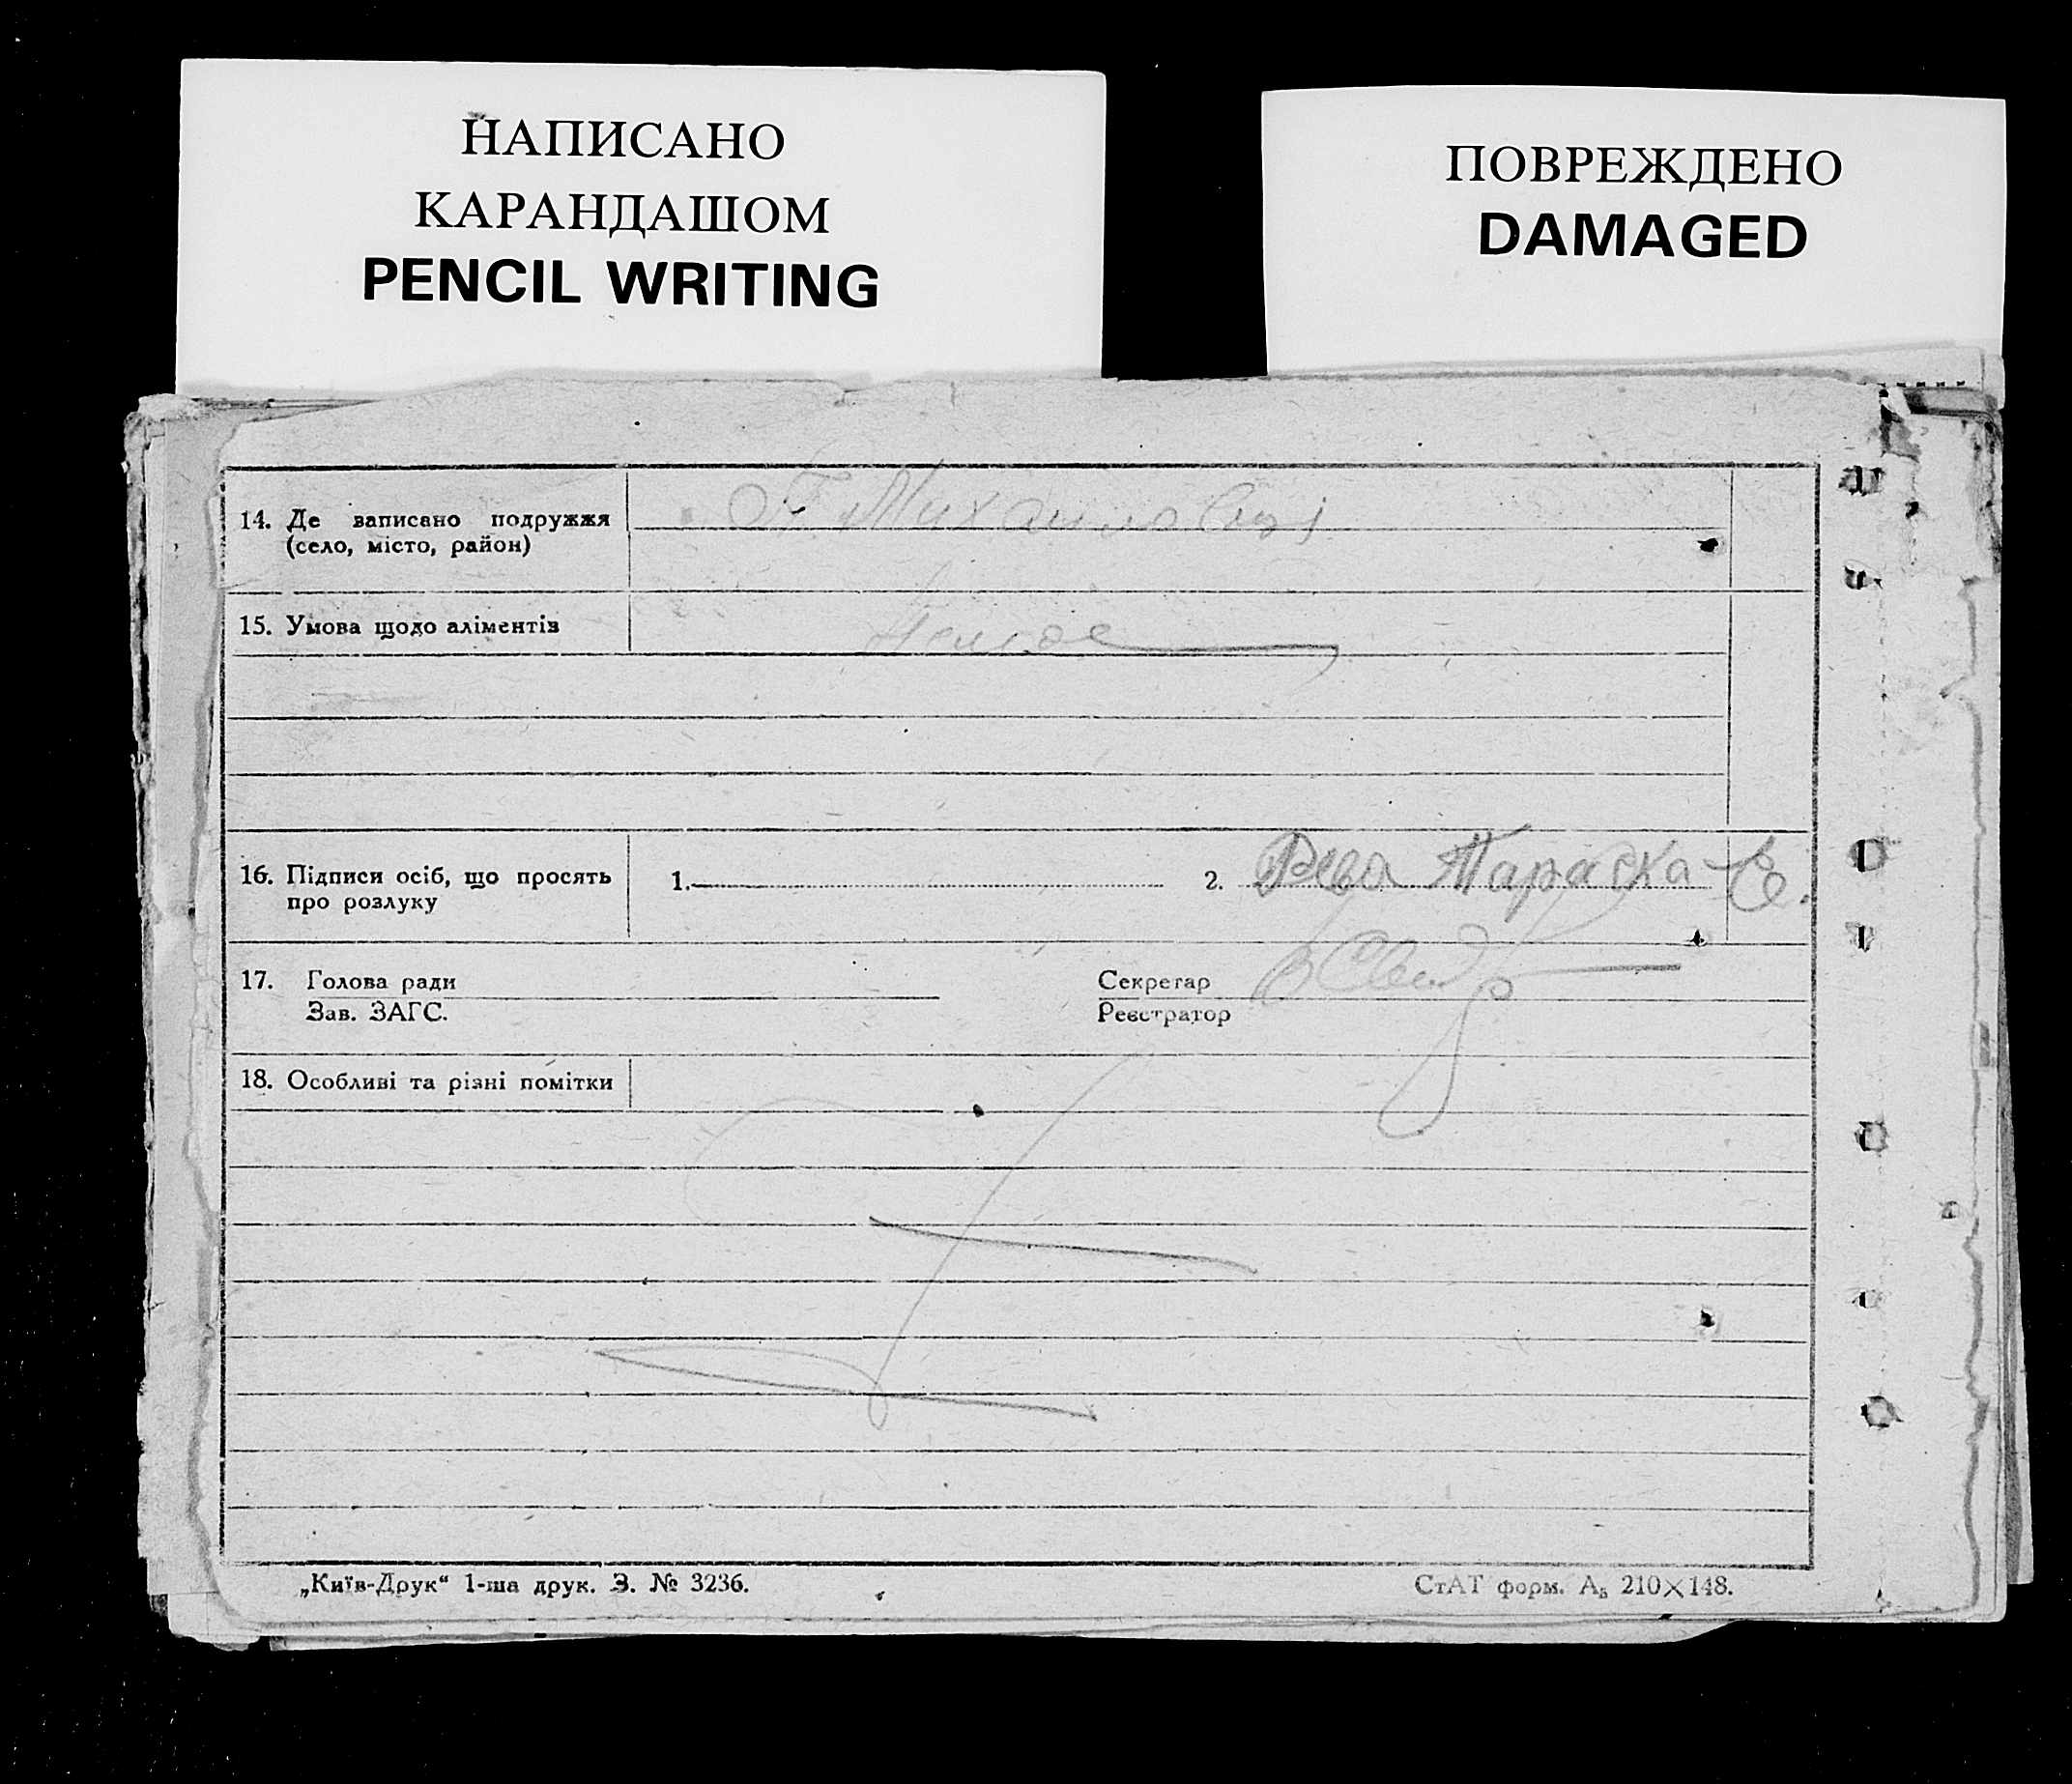 НАПИСАНО
КАРАНДАШОМ
PENCIL WRITING
ПОВРЕЖДЕНО
DAMAGED
14. Де записано подружжя
(село, місто, район)
15. Умова щодо аліментів
Немає
16. Підписи осіб, що просять
про розлуку
1.
2. Рева Параска Е.
17. Голова ради
Зав. ЗАГС.
Секретар
Реєстратор
18. Особливі та різні помітки
„Київ-Друк“ 1-ша друк. З. № 3236.
СтАТ форм. А₅ 210×148.